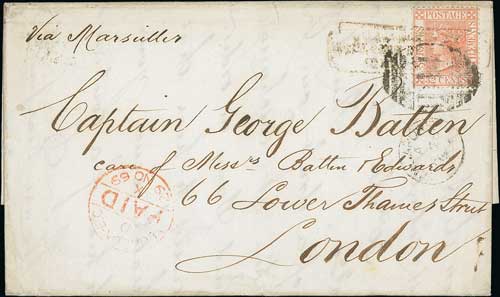 Via Marseilles
POSTAGE
CENTS
Captain George Batten
care of Messrs Battin & Edwards
66 Lower Thames Street
London
PAID
NO 69